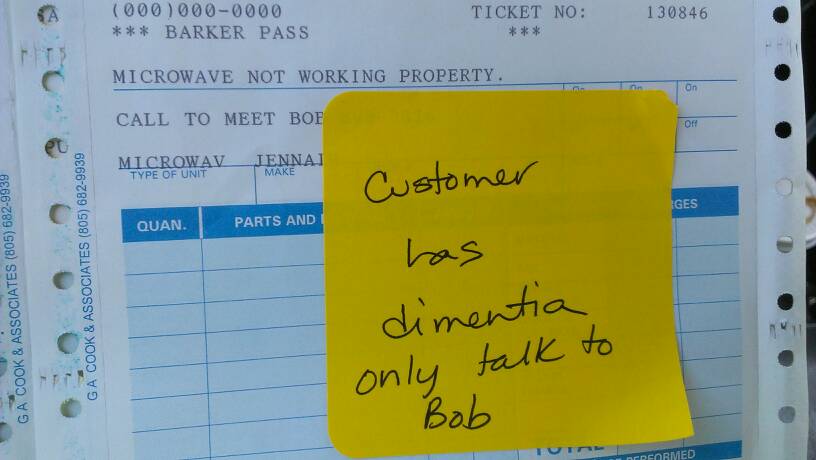 (000)000-0000 TICKET NO: 130846
*** BARKER PASS ***
MICROWAVE NOT WORKING PROPERTY.
On On On
CALL TO MEET BOB
Off
MICROWAV JENNAI
TYPE OF UNIT MAKE
QUAN. PARTS AND
TOTAL
PERFORMED
Customer
has
dimentia
only talk to
Bob
G A COOK & ASSOCIATES (805) 682-9939
G A COOK & ASSOCIATES (805) 682-9939